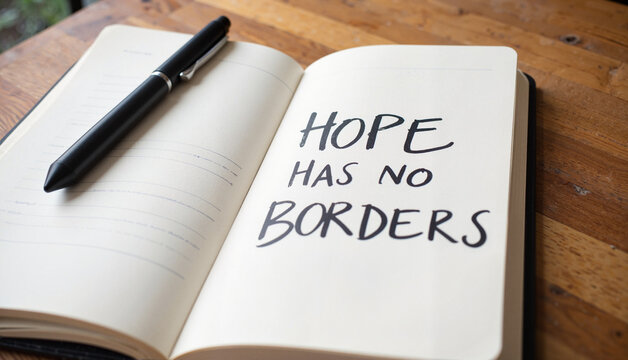 HOPE
HAS NO
BORDERS